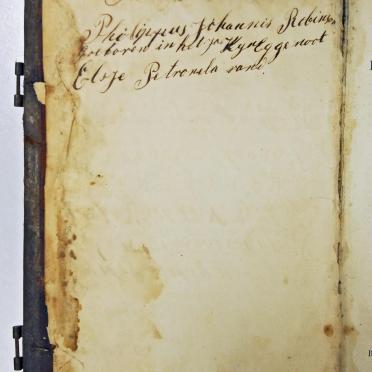 Philippus Johannis Robins
geboren in het jaar Hyn Eggenoot
Elsje Petronela van